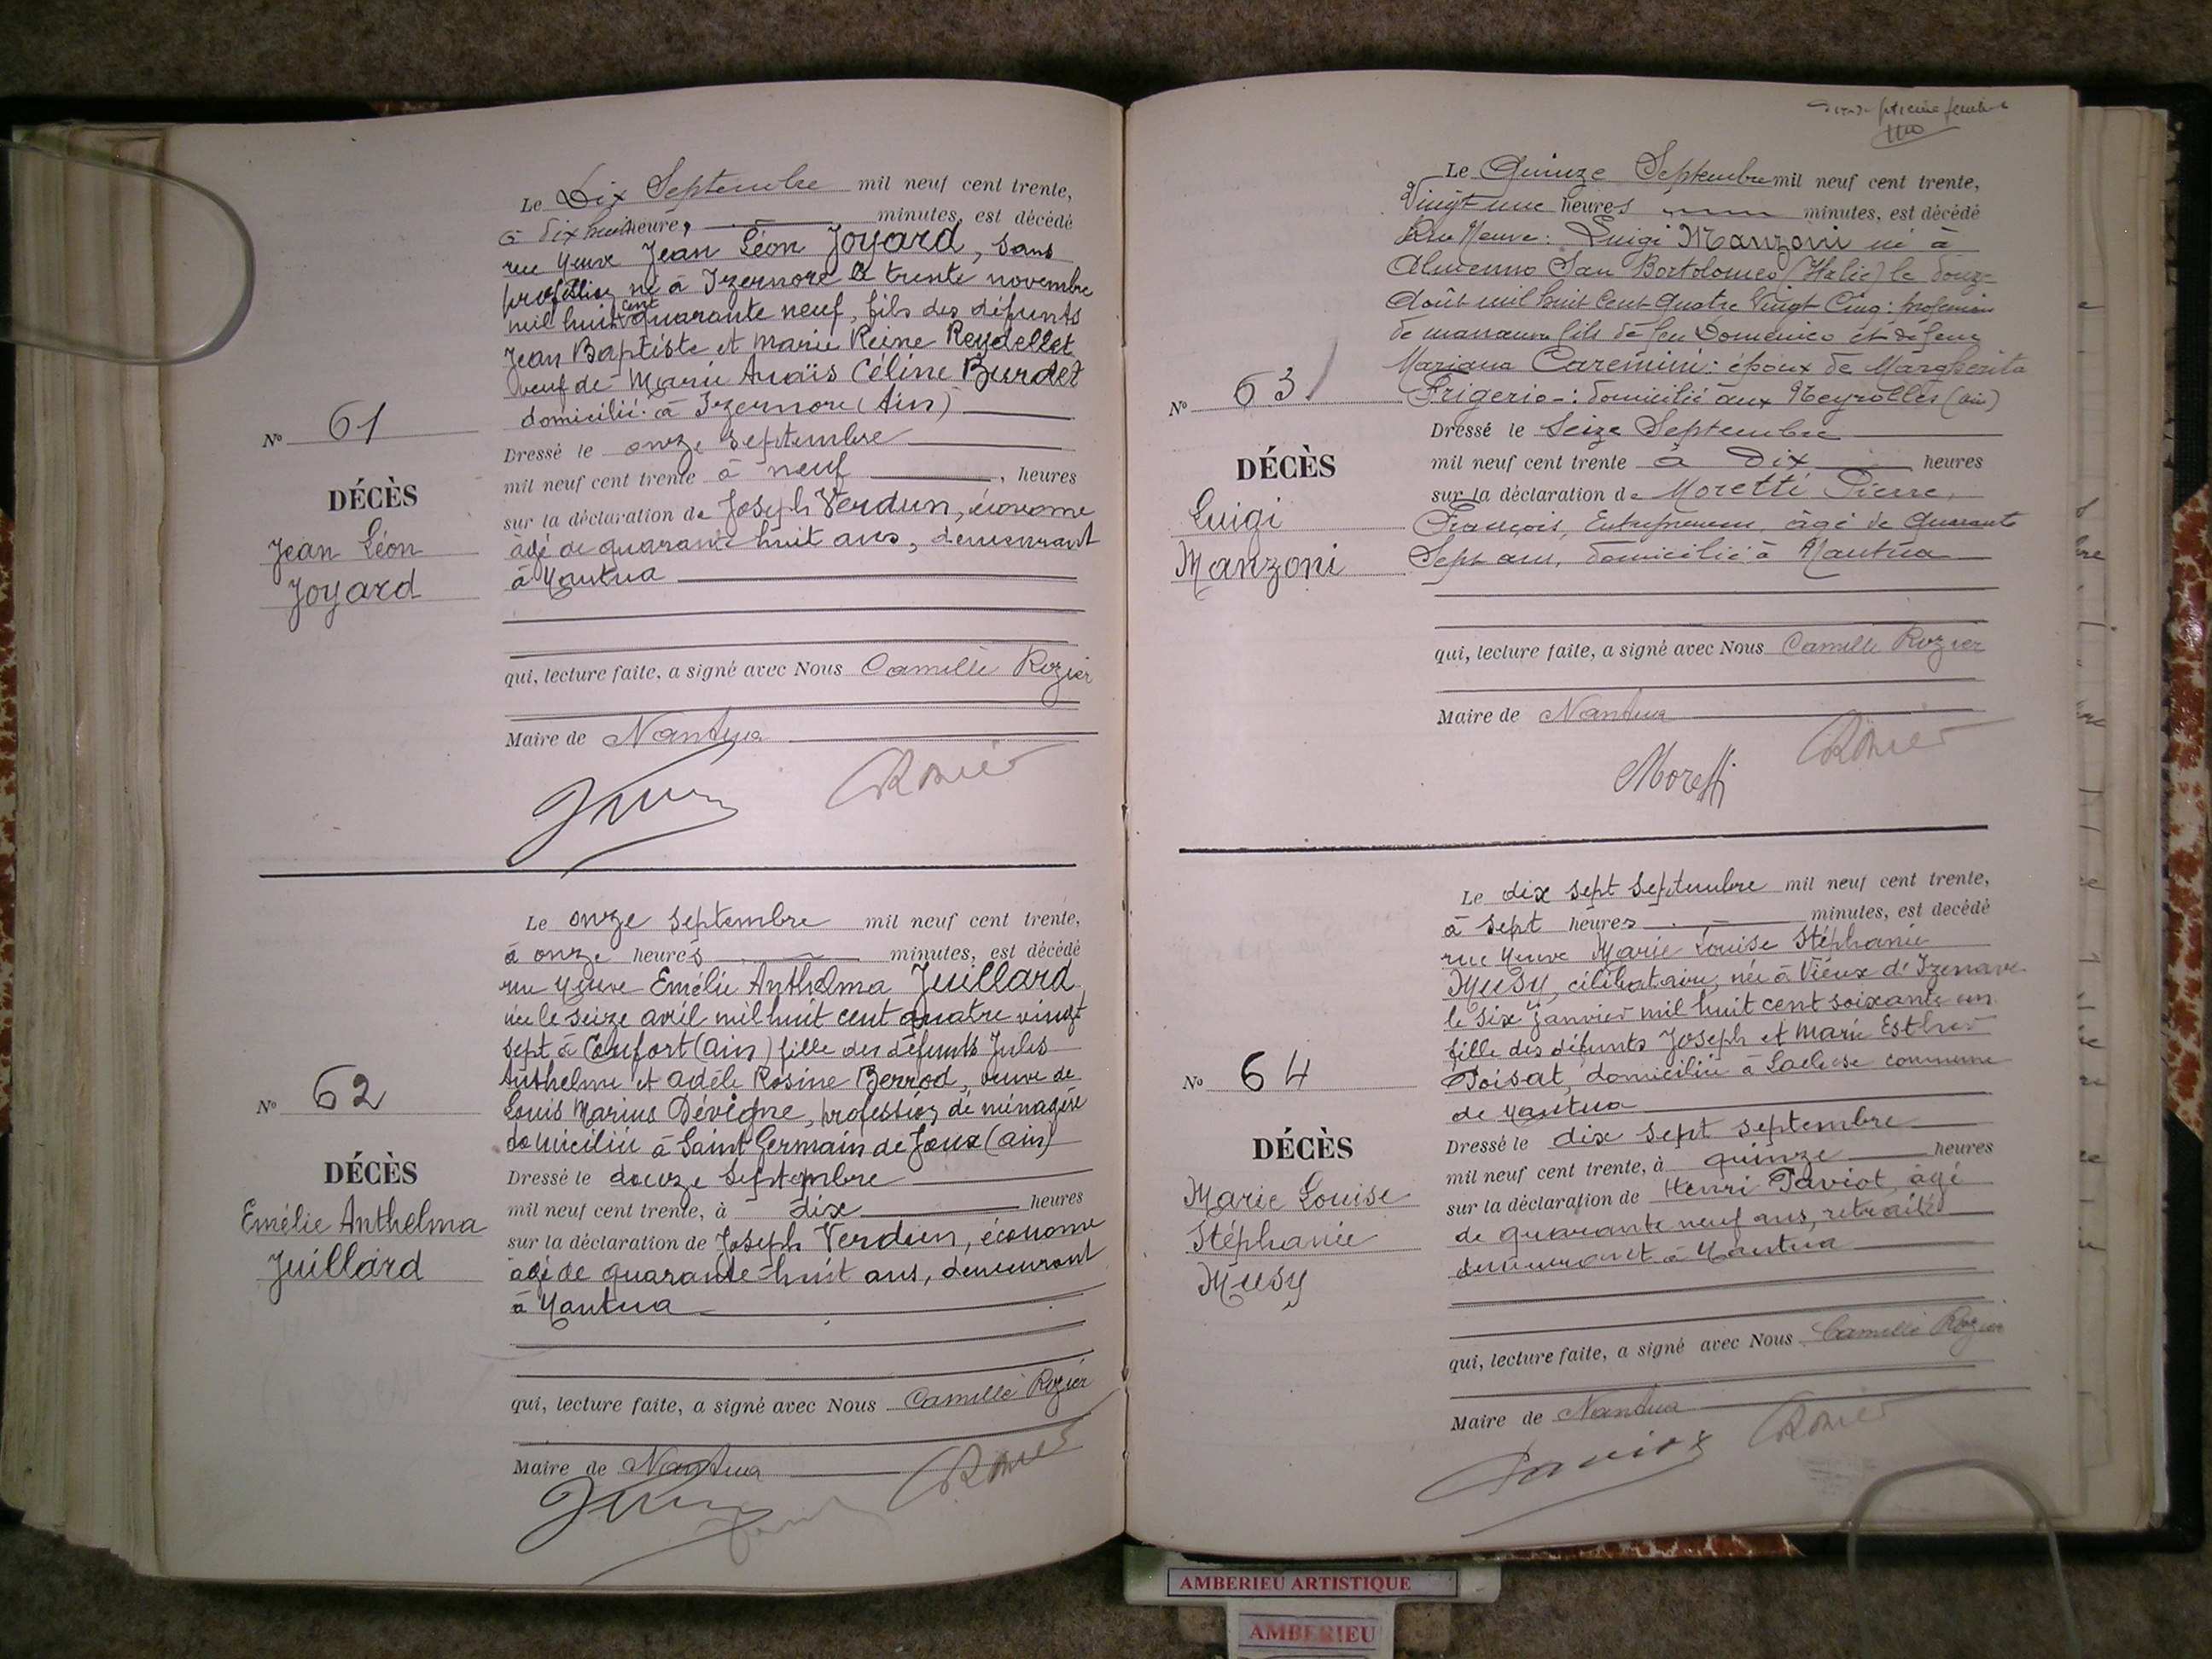 Le Dix Septembre mil neuf cent trente,
à dix huit heures, minutes, est décédé
rue Neuve Jean Léon Joyard, sans
profession né à Izernore le trente novembre
mil huit cent quarante neuf, fils des défunts
Jean Baptiste et Marie Reine Reydellet
veuf de Marie Anaïs Céline Burdet
domicilié à Izernore (Ain)
N° 61
Dressé le onze septembre
mil neuf cent trente à neuf, heures
DÉCÈS
sur la déclaration de Joseph Verdun, économe
Jean Léon
âgé de quarante huit ans, demeurant
Joyard
à Nantua
qui, lecture faite, a signé avec Nous Camille Rozier
Maire de Nantua
Le onze septembre mil neuf cent trente,
à onze heures minutes, est décédé
rue Neuve Emélie Anthelma Juillard
née le seize avril mil huit cent quatre vingt
sept à Confort (Ain) fille des défunts Jules
Anthelme et Adèle Rosine Berrod, veuve de
N° 62
Louis Marius Dévigne, profession de ménagère
domiciliée à Saint Germain de Joux (ain)
DÉCÈS
Dressé le douze Septembre
mil neuf cent trente, à dix heures
Emélie Anthelma
sur la déclaration de Joseph Verdun, économe
Juillard
âgé de quarante-huit ans, demeurant
à Nantua
qui, lecture faite, a signé avec Nous Camille Rozier
Maire de Nantua
Le Quinze Septembre mil neuf cent trente,
Vingt une heures minutes, est décédé
Rue Neuve: Luigi Manzoni né à
Almenno San Bortolomeo (Italie) le douze
Août mil huit Cent Quatre Vingt Cinq: profession
de manœuvre fils de feu Domenico et de feue
Mariana Caremini: époux de Margherita
N° 63
Frigerio: domicilié aux Neyrolles (ain)
Dressé le Seize Septembre
mil neuf cent trente à Dix heures
DÉCÈS
sur la déclaration de Moretti Pierre,
Luigi
François, Entrepreneur, âgé de Quarante
Manzoni
Sept ans, domicilié à Nantua
qui, lecture faite, a signé avec Nous Camille Rozier
Maire de Nantua
Moretti
Le dix sept Septembre mil neuf cent trente,
à sept heures minutes, est décédé
rue Neuve Marie Louise Stéphanie
Musy, célibataire, née à Vieux d'Izenave
le six janvier mil huit cent soixante un
fille des défunts Joseph et Marie Esther
N° 64
Poisat, domiciliée à Lacluse commune
de Nantua
DÉCÈS
Dressé le dix sept septembre
mil neuf cent trente, à quinze heures
Marie Louise
sur la déclaration de Henri Paviot, âgé
Stéphanie
de quarante neuf ans, retraité
Musy
demeurant à Nantua
qui, lecture faite, a signé avec Nous Camille Rozier
Maire de Nantua
Paviot
AMBERIEU ARTISTIQUE
AMBERIEU